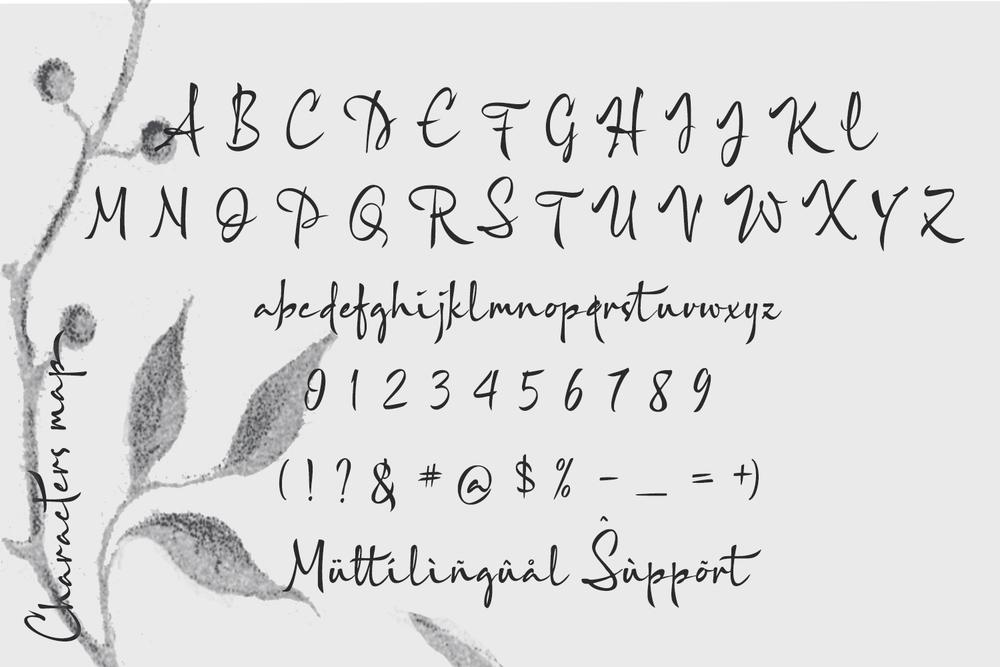 A B C D E F G H I J K L
M N O P Q R S T U V W X Y Z
abcdefghijklmnopqrstuvwxyz
0 1 2 3 4 5 6 7 8 9
( ! ? & # @ $ % - _ = + )
Müttílìñgûål Ŝùppõrt
Characters map